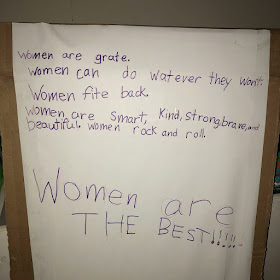 Women are grate.
Women can do watever they wont.
Women fite back.
Women are smart, kind, strong, brave, and
beautiful. women rock and roll.
Women are
THE BEST!!!!!